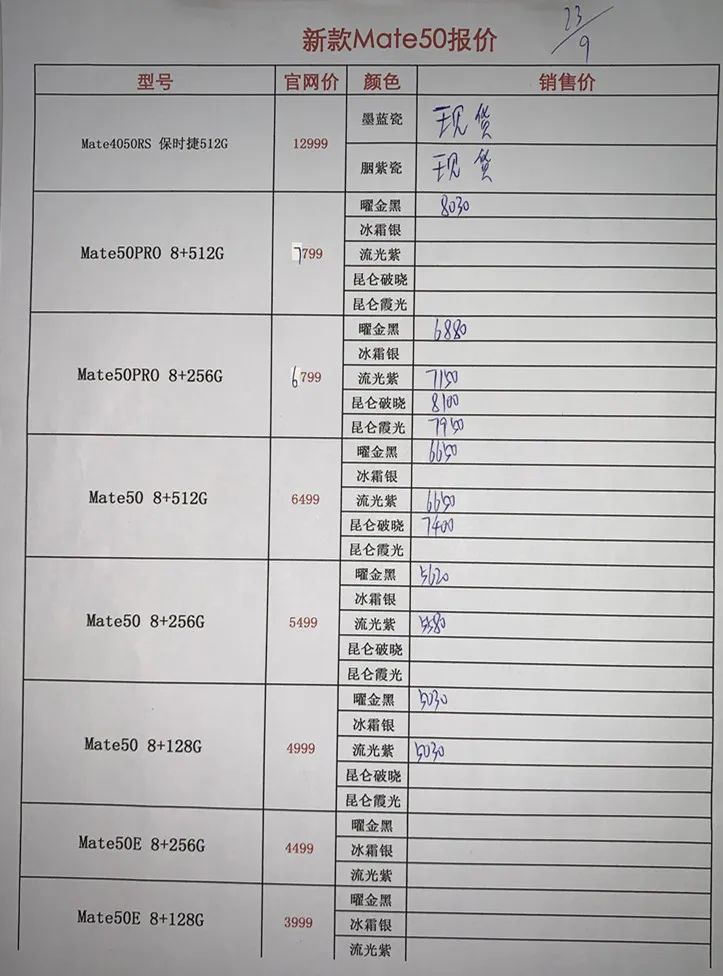 新款Mate50报价 23/9
型号 官网价 颜色 销售价
Mate4050RS 保时捷512G 12999 墨蓝瓷 现货
胭紫瓷 现货
Mate50PRO 8+512G 7799 曜金黑 8030
冰霜银
流光紫
昆仑破晓
昆仑霞光
Mate50PRO 8+256G 6799 曜金黑 6880
冰霜银
流光紫 7150
昆仑破晓 8100
昆仑霞光 7950
Mate50 8+512G 6499 曜金黑 6650
冰霜银
流光紫 6650
昆仑破晓 7400
昆仑霞光
Mate50 8+256G 5499 曜金黑 5620
冰霜银
流光紫 5580
昆仑破晓
昆仑霞光
Mate50 8+128G 4999 曜金黑 5030
冰霜银
流光紫 5030
昆仑破晓
昆仑霞光
Mate50E 8+256G 4499 曜金黑
冰霜银
流光紫
Mate50E 8+128G 3999 曜金黑
冰霜银
流光紫